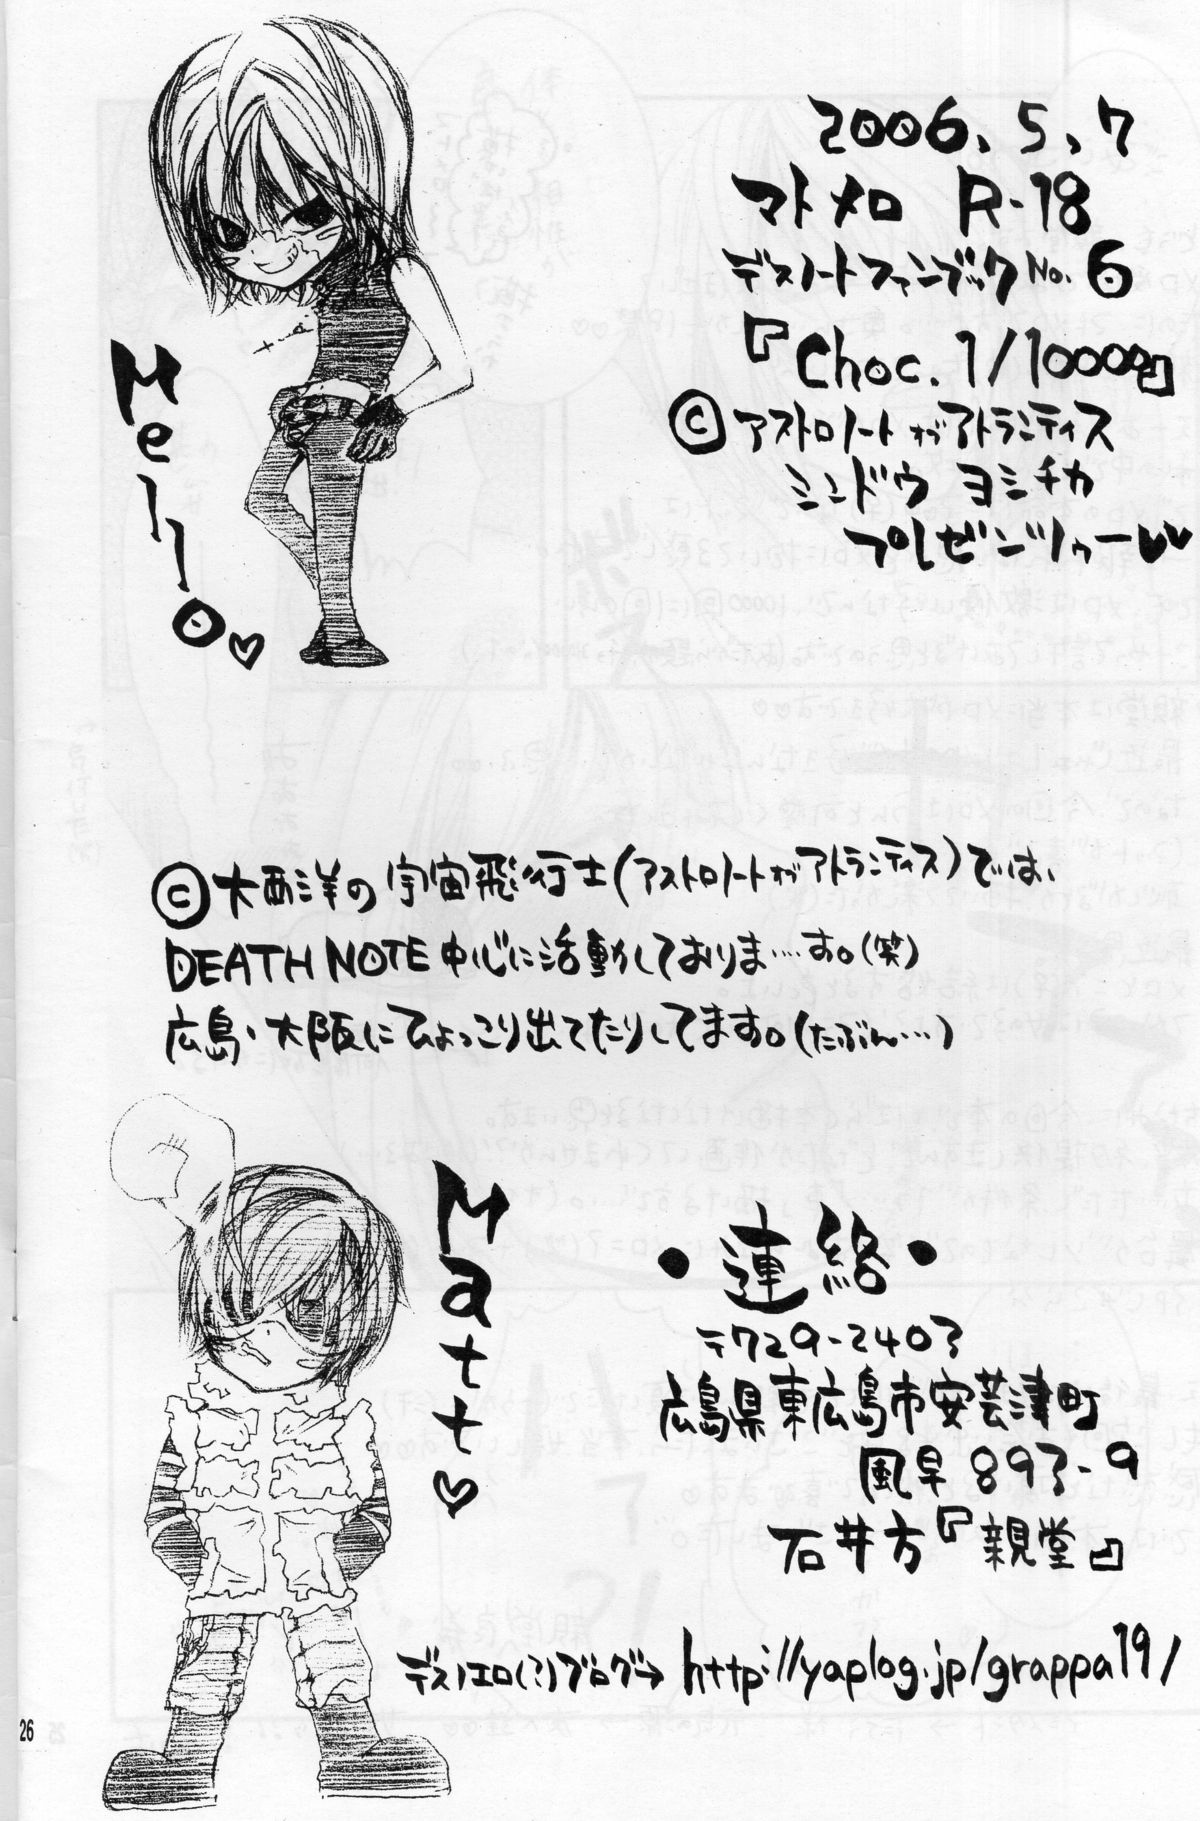 Mello♡
2006.5.7
マトメロ R-18
デスノートファンブック No.6
『Choc.1/10000』
©アストロノートオブアトランティス
ミンドウ ヨシチカ
プレゼンツゥー♥♥
©大西洋の宇宙飛行士(アストロノートオブアトランティス)では、
DEATH NOTE中心に活動しておりま…す。(笑)
広島・大阪にひょっこり出てたりしてます。(たぶん…)
Matt♡
・連絡・
〒729-2403
広島県東広島市安芸津町
風早893-9
石井方『親堂』
デスノエロ(?)ブログ→ http://yaplog.jp/grappa19/
26